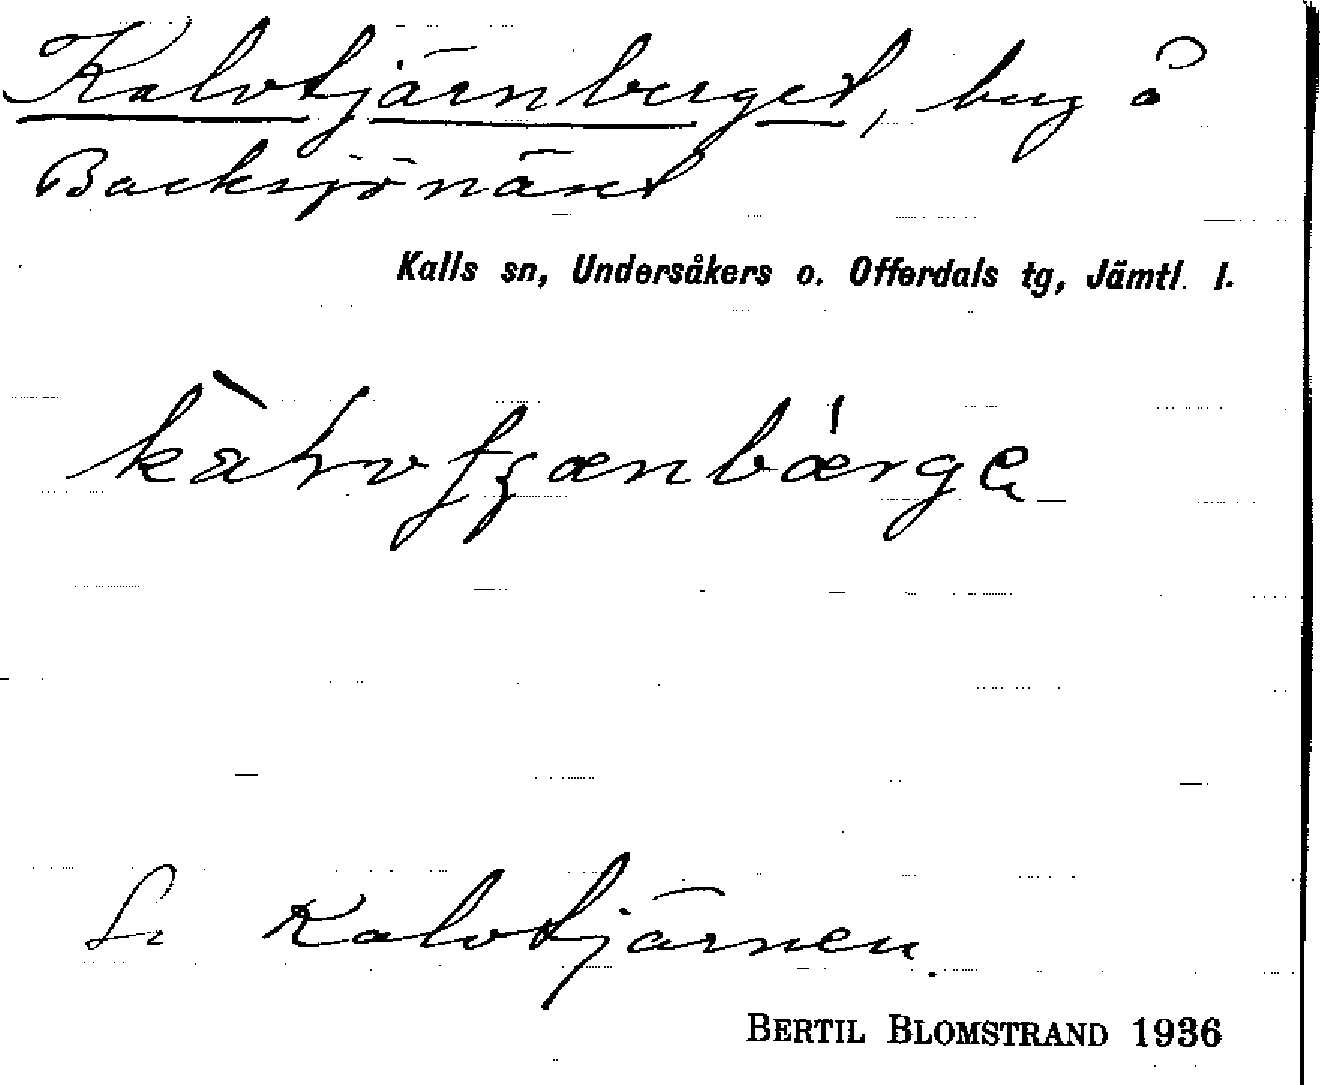 Kalvtjärnberget, berg å
Backsjönäset
Kalls sn, Undersåkers o. Offerdals tg, Jämtl. l.
Se Kalvtjärnen.
BERTIL BLOMSTRAND 1936